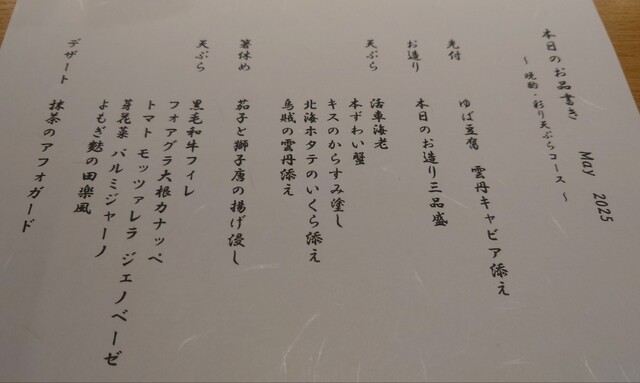 本日のお品書き
May 2025
～ 晩酌・彩り天ぷらコース ～
先付
ゆば豆腐 雲丹キャビア添え
お造り
本日のお造り三品盛
天ぷら
活車海老
本ずわい蟹
キスのからすみ塗し
北海ホタテのいくら添え
烏賊の雲丹添え
箸休め
茄子と獅子唐の揚げ浸し
天ぷら
黒毛和牛フィレ
フォアグラ大根カナッペ
トマト モッツァレラ ジェノベーゼ
芽花菜 パルミジャーノ
よもぎ麩の田楽風
デザート
抹茶のアフォガード